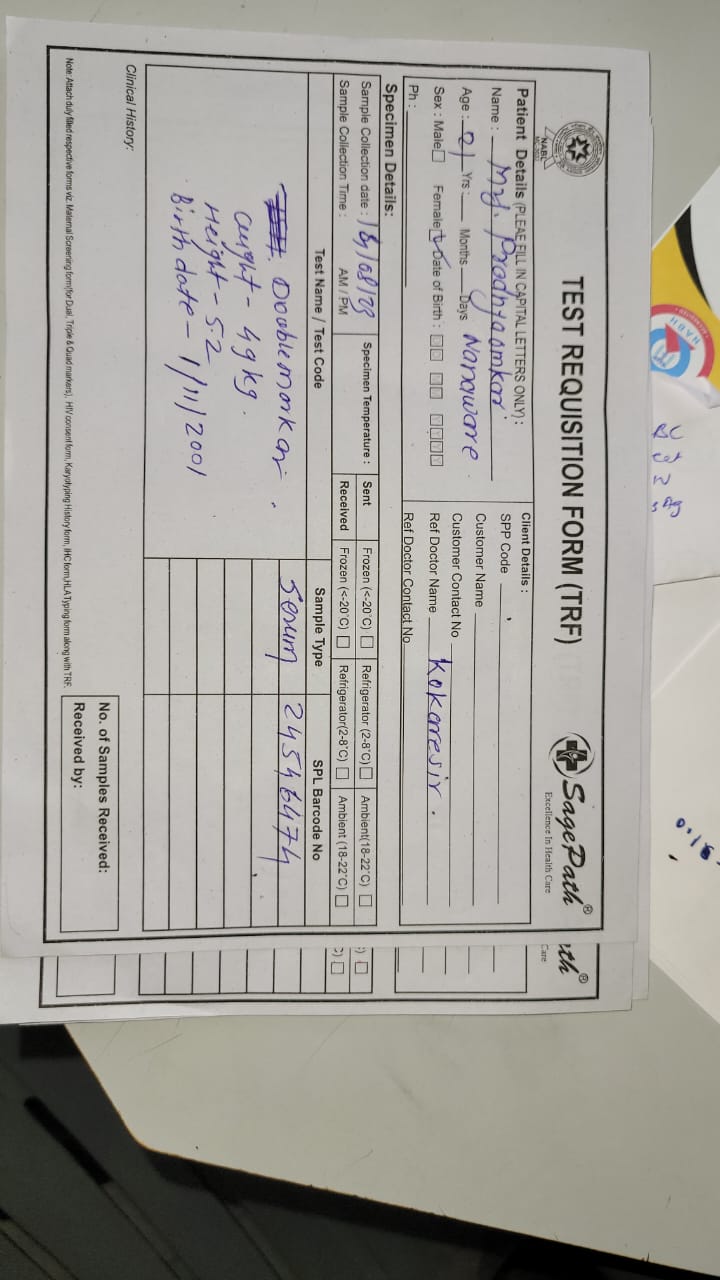 TEST REQUISITION FORM (TRF)
NABL
SagePath®
Excellence In Health Care
Patient Details (PLEAE FILL IN CAPITAL LETTERS ONLY):
Name: Mrs. Pradnya omkar
Nanaware
Age: 21 Yrs: Months Days
Sex: Male Female Date of Birth:
Ph:
Client Details:
SPP Code
Customer Name
Customer Contact No
Ref Doctor Name Kokaresir.
Ref Doctor Contact No
Specimen Details:
Sample Collection date: /08/23
Sample Collection Time: AM / PM
Specimen Temperature: Sent Frozen (<-20°C) Refrigerator (2-8°C) Ambient(18-22°C)
Received Frozen (<-20°C) Refrigerator(2-8°C) Ambient (18-22°C)
Test Name / Test Code Sample Type SPL Barcode No
Doublemarkar. Serum 24546474
Weight - 49kg.
Height - 5.2
Birth date - 1/11/2001
Clinical History:
No. of Samples Received:
Received by:
Note: Attach duly filled respective forms viz. Maternal Screening form(for Dual, Triple & Quad markers), HIV consent form, Karyotyping History form, IHC form, HLA Typing form along with TRF.
NABH